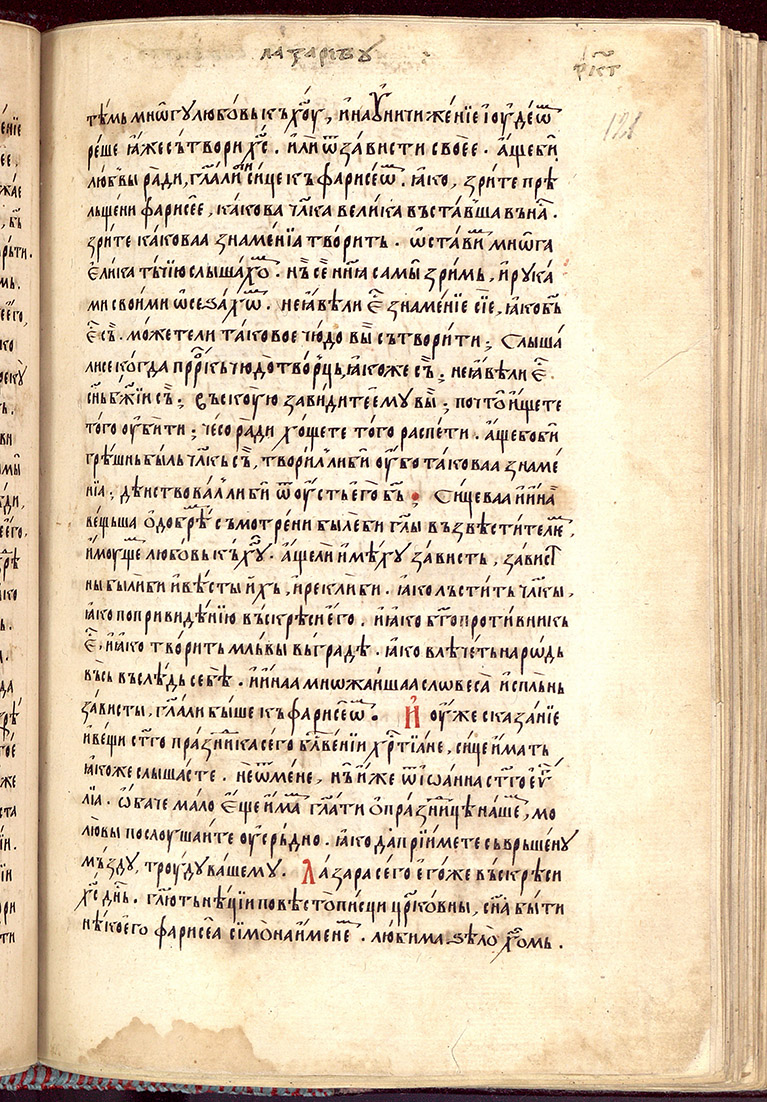 лазаревꙋ
рк҃г
121
тѣмь мнѡгꙋ любовь къ хоу҃, и на ѹничиженїе їоудеѡⷨ
реше ꙗже сътвори хс҃. или ѿ зависти своее. аще би
любви ради, гл҃али би сице къ фарисеѡⷨ. ꙗко, зрите прѣ
льщени фарисее, какова чл҃ка велика въставьша въ наⷭ.
зрите каковаа знаменїа творить. ѡстави мнѡга
елика тъчїю слышахѡⷨ. нъ се нн҃ꙗ сами зримь, и рꙋка
ми своими ѡсезахѡⷨ. не ꙗвѣ ли еⷭ҇ знаменїе сїе, ꙗко бъ҃
еⷭ҇ съ. можете ли таковое чюдо вы сътворити; слыша
ли се когда прⷪ҇ркь чюдотворць, ꙗкоже съ; не ꙗвѣ ли еⷭ҇
сн҃ь бж҃їи съ; въскоую завидите емꙋ вы; почто ищете
того ѹбити; чесо ради хощете того распети. аще бо би
грѣшнь быль чл҃кь съ, творил ли би ѹбо таковаа знаме
нїа; дѣиствовал ли би ѿ ѹсть его бъ҃. Сицеваа и ина
вещьша ѡ добрѣ съмотрени были би гл҃ы възвѣстителїе,
имоуще любовь къ хꙋ҃. аще ли имѣхꙋ зависть, завист
ны были би и вѣсты ихь, и рекли би. ꙗко льстить чл҃кы,
ꙗко по привидѣнїю въскрѣсн его. и ꙗко бг҃опротивникь
еⷭ҇, и ꙗко творить мльвы вь градѣ. ꙗко влѣчеть нарѡдь
вьсь въслѣдь себѣ. и инаа множаишаа словеса исплънь
зависты, гл҃али быше къ фарисеѡⷨ. И оуже сказанїе
и вещи ст҃го празⷣника сего бл҃гвенїи хрⷭ҇тїане, сице имать
ꙗкоже слышасте. не ѿ мене, нъ иже ѿ їѡанна ст҃го еѵⷢ
лїа. ѡбаче мало еще имаⷨ гл҃ати о празⷣницѣ нашеⷨ, мо
лю вы послоушаите оусрьдно. ꙗко да прїимете съврьшенꙋ
мъздꙋ, троудꙋ вашемꙋ. Лазара сего егоже въскрѣси
хс҃ днⷭ҇ь. гл҃ють нѣцїи повѣстописци цр҃ковны, сн҃а быти
нѣкоего фарисеа сїмона именеⷨ. любима ѕѣло хⷭ҇омь.